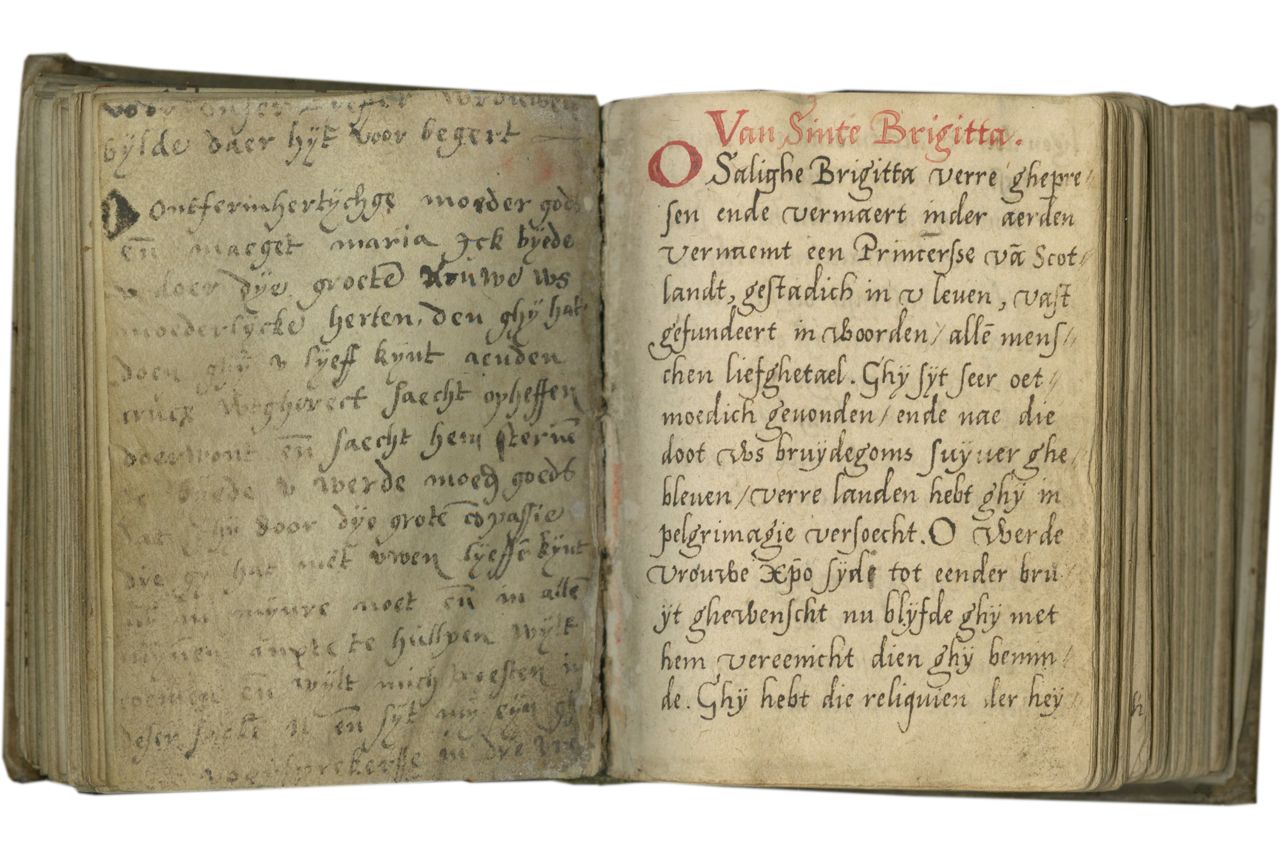 voor onser liever vrouwen
bÿlde daer hÿt voor begert
O Ontfermhertÿchge moeder gods
en̄ maeget maria Jck bÿede
v doer dÿe groete rouwe ws
moederlÿcke herten, den ghÿ hat
doen ghÿ v lÿeff kÿnt aenden
cruce saecht opheffen
doerwont en̄ saecht hem steruē
v werde moed goeds
door dÿe grote cōpassie
dÿe gÿ hat met vwen lÿeffē kÿnt
in mÿnre noet en̄ in allē
mÿnen te hullpen wÿlt
comen en wÿlt mich troesten in
deser en̄ sÿt mÿ eÿn
voersprekersse in
Van Sinte Brigitta.
O Salighe Brigitta verre ghepre⸗
sen ende vermaert inder aerden
vernaemt een Princersse vā Scot⸗
landt, gestadich in v leuen, vast
gefundeert in woorden/ allē mens⸗
chen liefghetael. Ghÿ sÿt seer oet⸗
moedich geuonden/ ende nae die
doot ws bruÿdegoms suÿuer ghe⸗
bleuen/ verre landen hebt ghÿ in
pelgrimagie versoecht. O werde
vrouwe xp̄o sÿde tot eender bru⸗
ÿt ghewenscht nu blÿfde ghÿ met
hem vereenicht dien ghÿ bemin⸗
de. Ghÿ hebt die reliquien der heÿ⸗